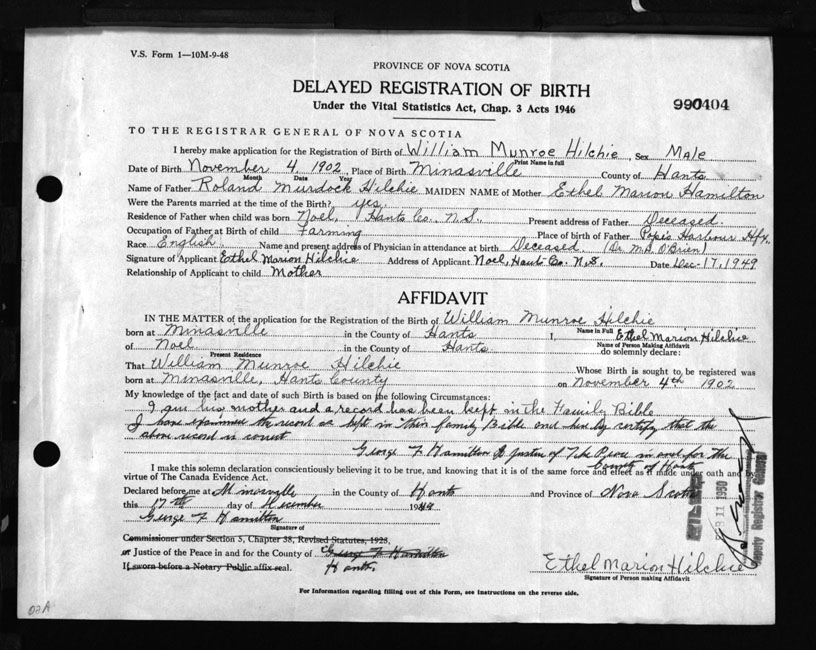 V.S. Form 1—10M-9-48
PROVINCE OF NOVA SCOTIA
DELAYED REGISTRATION OF BIRTH
Under the Vital Statistics Act, Chap. 3 Acts 1946
990404
TO THE REGISTRAR GENERAL OF NOVA SCOTIA
I hereby make application for the Registration of Birth of William Munroe Hilchie Sex Male
Print Name in full
Date of Birth November 4, 1902, Place of Birth Minasville County of Hants
Month Date Year
Name of Father Roland Murdock Hilchie MAIDEN NAME of Mother Ethel Marion Hamilton
Were the Parents married at the time of the Birth? yes.
Residence of Father when child was born Noel, Hants Co., N.S. Present address of Father Deceased.
Occupation of Father at Birth of child Farming Place of birth of Father Pope's Harbour Hfx.
Race English Name and present address of Physician in attendance at birth Deceased (Dr. M.A. O'Brien)
Signature of Applicant Ethel Marion Hilchie Address of Applicant Noel, Hants Co. N.S. Date Dec. 17, 1949
Relationship of Applicant to child Mother
AFFIDAVIT
IN THE MATTER of the application for the Registration of the Birth of William Munroe Hilchie
Name in Full
born at Minasville in the County of Hants I, Ethel Marion Hilchie
Name of Person Making Affidavit
of Noel in the County of Hants do solemnly declare:
Present Residence
That William Munroe Hilchie Whose Birth is sought to be registered was
born at Minasville, Hants County on November 4th 1902
My knowledge of the fact and date of such Birth is based on the following Circumstances:
I am his mother and a record has been kept in the Family Bible.
I have examined the record as kept in their family Bible and hereby certify that the
above record is correct
George F Hamilton A Justice of The Peace in and for the
County of Hants
I make this solemn declaration conscientiously believing it to be true, and knowing that it is of the same force and effect as if made under oath and by
virtue of The Canada Evidence Act.
Declared before me at Minasville in the County of Hants and Province of Nova Scotia
this 17th day of December 1949
George F Hamilton
Signature of
Commissioner under Section 5, Chapter 38, Revised Statutes, 1923,
or Justice of the Peace in and for the County of George F Hamilton
If sworn before a Notary Public affix seal. Hants
Ethel Marion Hilchie
Signature of Person making Affidavit
11 1950
Deputy Registrar General
For Information regarding filling out of this Form, see Instructions on the reverse side.